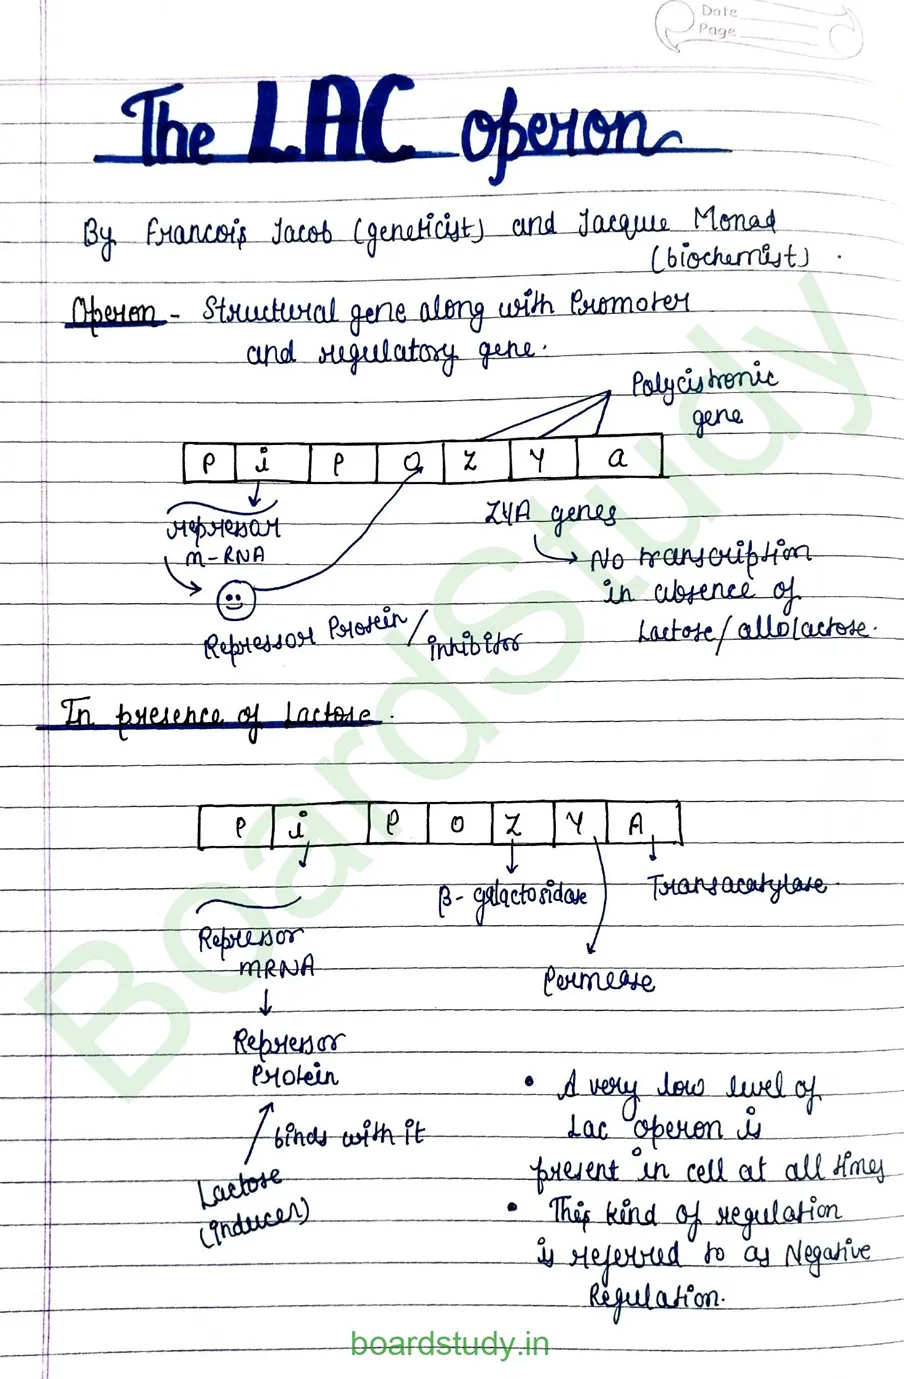 Date
Page
The LAC operon
By Francois Jacob (geneticist) and Jacque Monad
(biochemist).
Operon - Structural gene along with Promoter
and regulatory gene.
Polycistronic
gene
P i P O Z Y a
repressor
m-RNA
ZYA genes
No transcription
in absence of
Lactose/allolactose.
Repressor Protein/
inhibitor
In presence of Lactose.
P i P O Z Y A
β-galactosidase
Transacetylase.
Permease
Repressor
mRNA
Repressor
Protein
binds with it
Lactose
(inducer)
• A very low level of
Lac operon is
present in cell at all times
• This kind of regulation
is referred to as Negative
Regulation.
BoardStudy
boardstudy.in